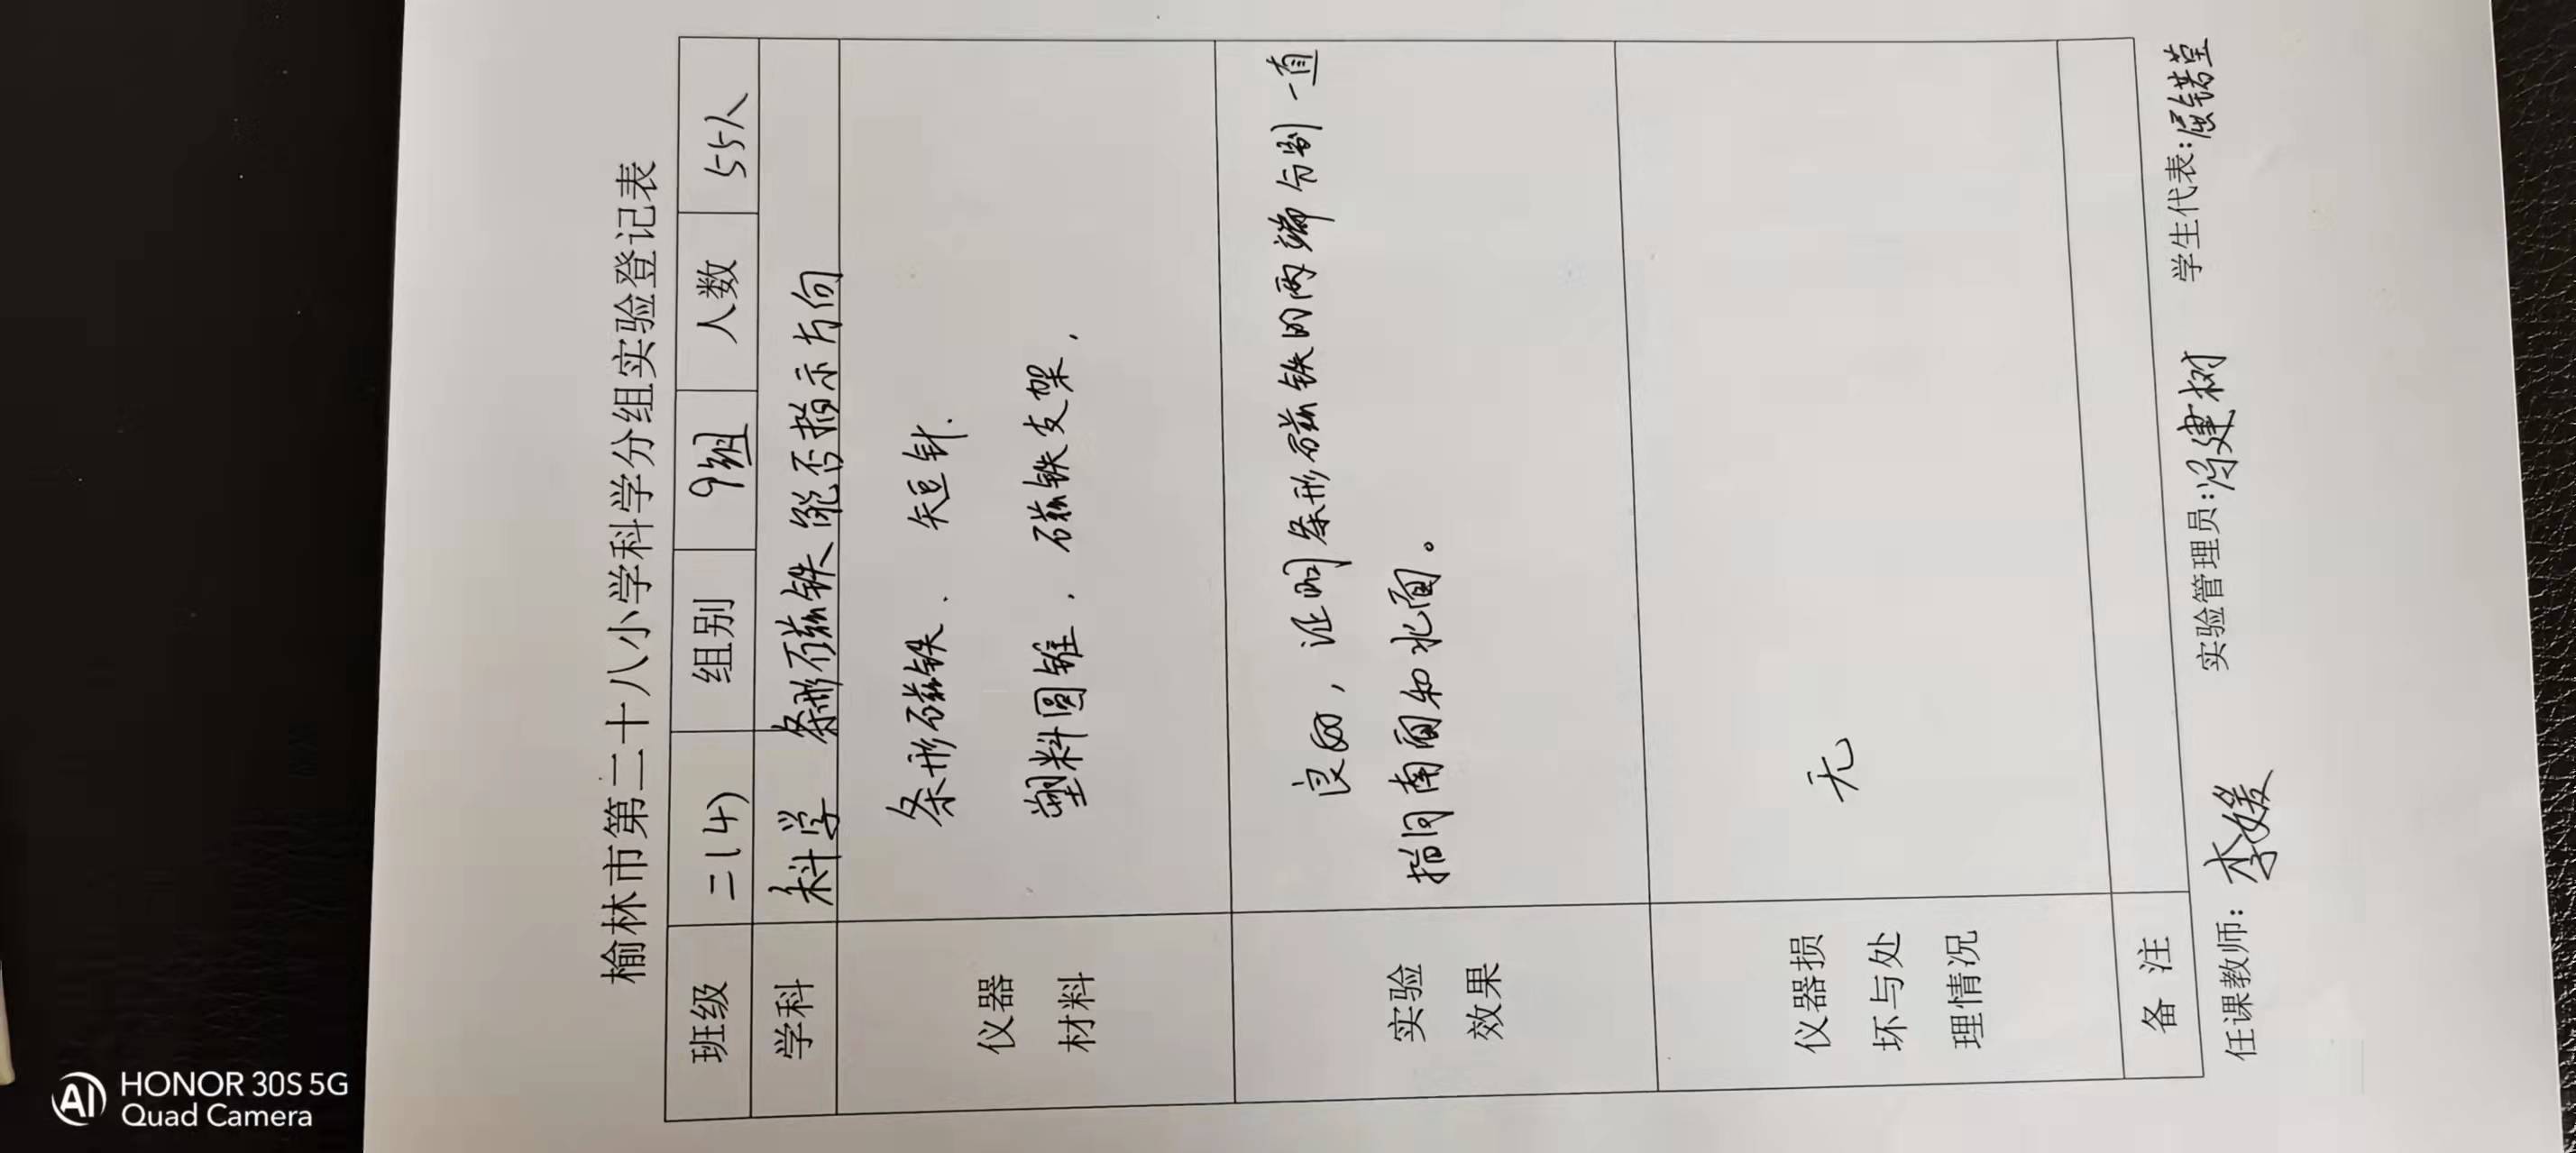 榆林市第二十八小学科学分组实验登记表
班级 二(4) 组别 9组 人数 55人
学科 科学 条形磁铁能否指示方向
仪器
材料
条形磁铁、矢豆针.
塑料圆锥、磁铁支架,
实验
效果
良好,证明条形磁铁的两端分别一直
指向南面和北面。
仪器损
坏与处
理情况
无
备 注
任课教师:李媛 实验管理员:冯建树 学生代表:屈诺莹
AI HONOR 30S 5G
Quad Camera